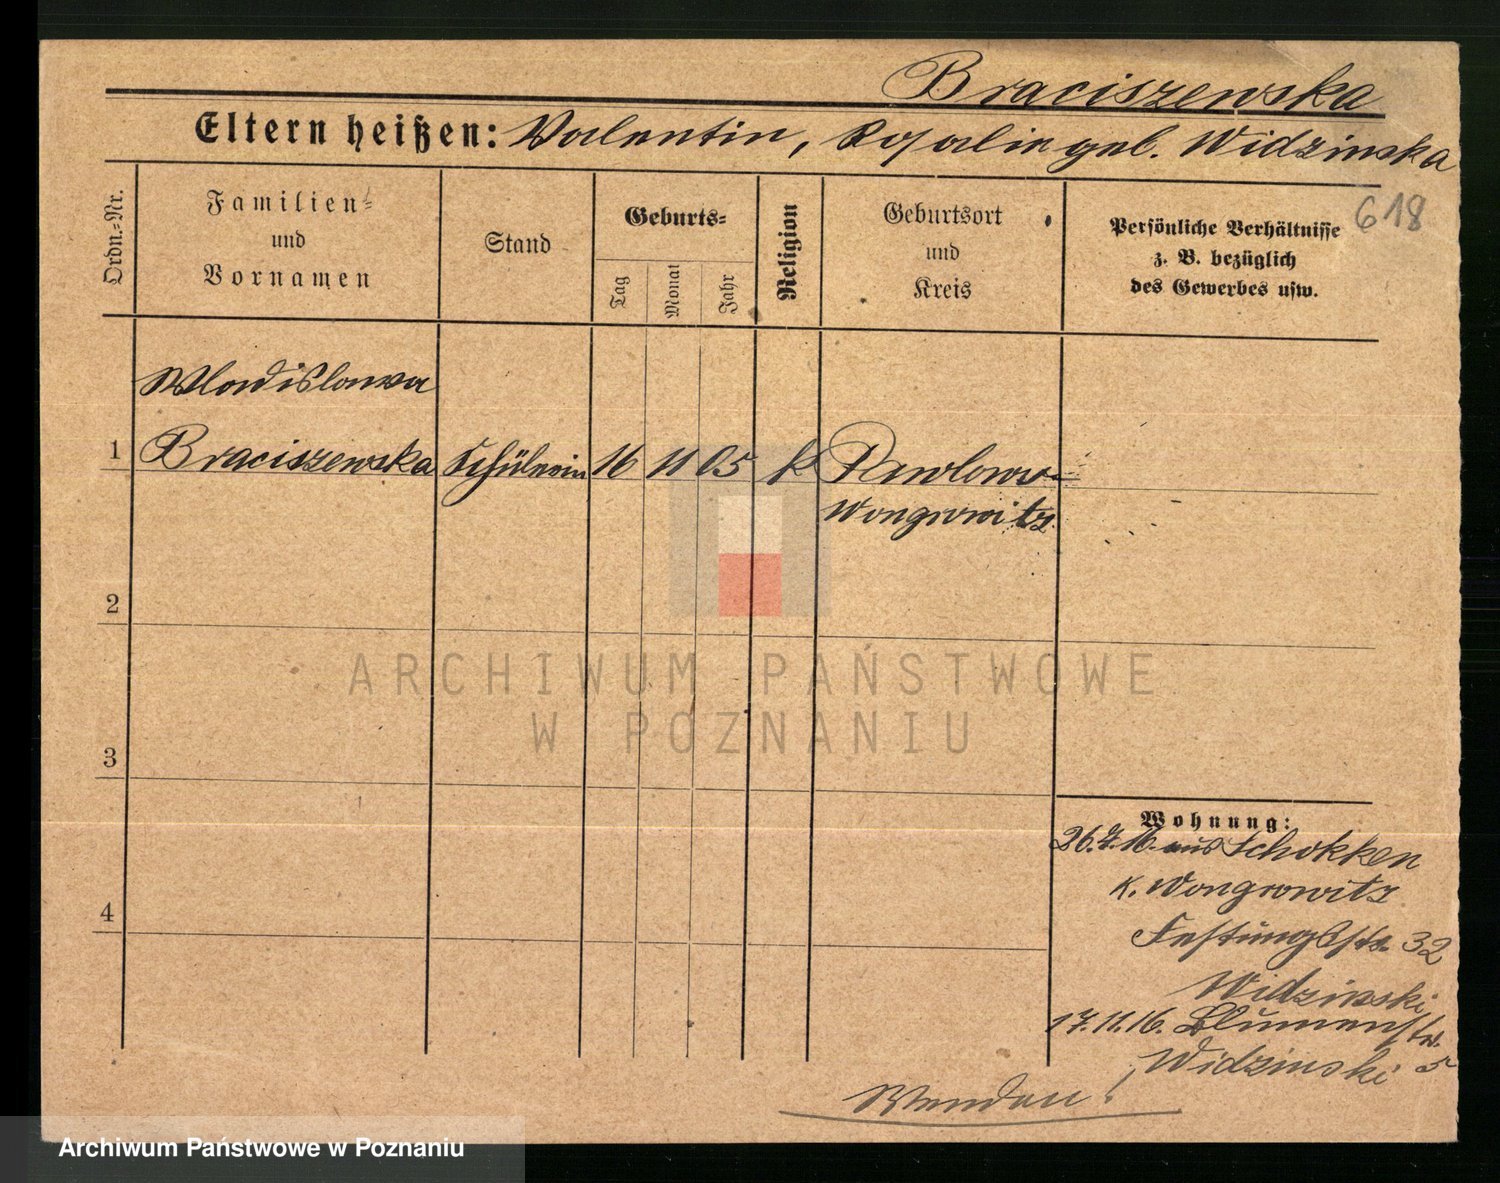 Braciszewska
Eltern heißen: Valentin, Rosalie geb. Widzinska
618
Ordn.-Nr.
Familien-
und
Vornamen
Stand
Geburts-
Tag
Monat
Jahr
Religion
Geburtsort
und
Kreis
Persönliche Verhältnisse
z. B. bezüglich
des Gewerbes usw.
Wladislawa
1 Braciszewska Schülerin 16 11 05 k Pawlowo-
Wongrowitz
2
3
4
Wohnung:
26.7.16. aus Schokken
K. Wongrowitz
Festungsstr. 32
Widzinski
17.11.16. Blumenstr. 5
Widzinski
Wenden!
ARCHIWUM PAŃSTWOWE
W POZNANIU
Archiwum Państwowe w Poznaniu